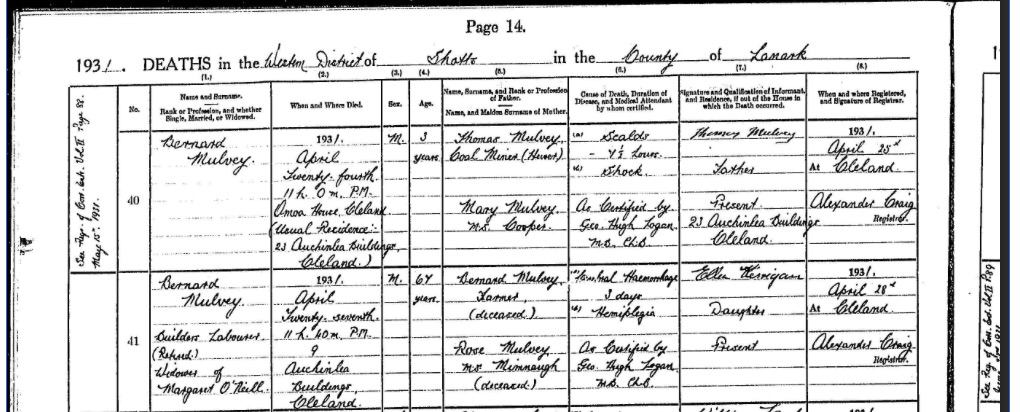 Page 14.
1931. DEATHS in the Western District of Shotts in the County of Lanark
(1.) (2.) (3.) (4.) (5.) (6.) (7.) (8.)
No.
Name and Surname.
Rank or Profession, and whether
Single, Married, or Widowed.
When and Where Died.
Sex.
Age.
Name, Surname, and Rank or Profession
of Father.
Name, and Maiden Surname of Mother.
Cause of Death, Duration of
Disease, and Medical Attendant
by whom certified.
Signature and Qualification of Informant,
and Residence, if out of the House in
which the Death occurred.
When and where Registered,
and Signature of Registrar.
See Reg. of Corr. Ent. Vol. II Page 88.
May 15th 1931.
40
Bernard
Mulvey.
1931.
April
Twenty-fourth
11 h. 0 m. P.M.
Omoa House, Cleland.
(Usual Residence:-
23 Auchinlea Buildings,
Cleland.)
M.
3
years
Thomas Mulvey,
Coal Miner (Hewer)
Mary Mulvey
M.S. Cooper.
(a) Scalds
- 4½ hours.
(b) Shock.
As Certified by
Geo. High Logan
M.B. Ch.B.
Thomas Mulvey
Father
Present
23 Auchinlea Buildings
Cleland.
1931.
April 25th
At Cleland.
Alexander Craig
Registrar.
41
Bernard
Mulvey
Builders Labourer
(Retired)
Widower of
Margaret O'Neill.
1931.
April
Twenty-seventh
11 h. 40 m. P.M.
9
Auchinlea
Buildings,
Cleland.
M.
67
years.
Bernard Mulvey,
Farmer,
(deceased)
Rose Mulvey
M.S. Mimnaugh
(deceased)
(a) Cerebral Haemorrhage
3 days
(b) Hemiplegia
As Certified by
Geo. High Logan
M.B. Ch.B.
Ellen Kerrigan
Daughter
Present
1931.
April 28th
At Cleland
Alexander Craig
Registrar.
See Reg. of Corr. Ent. Vol. II P. 89
1931.